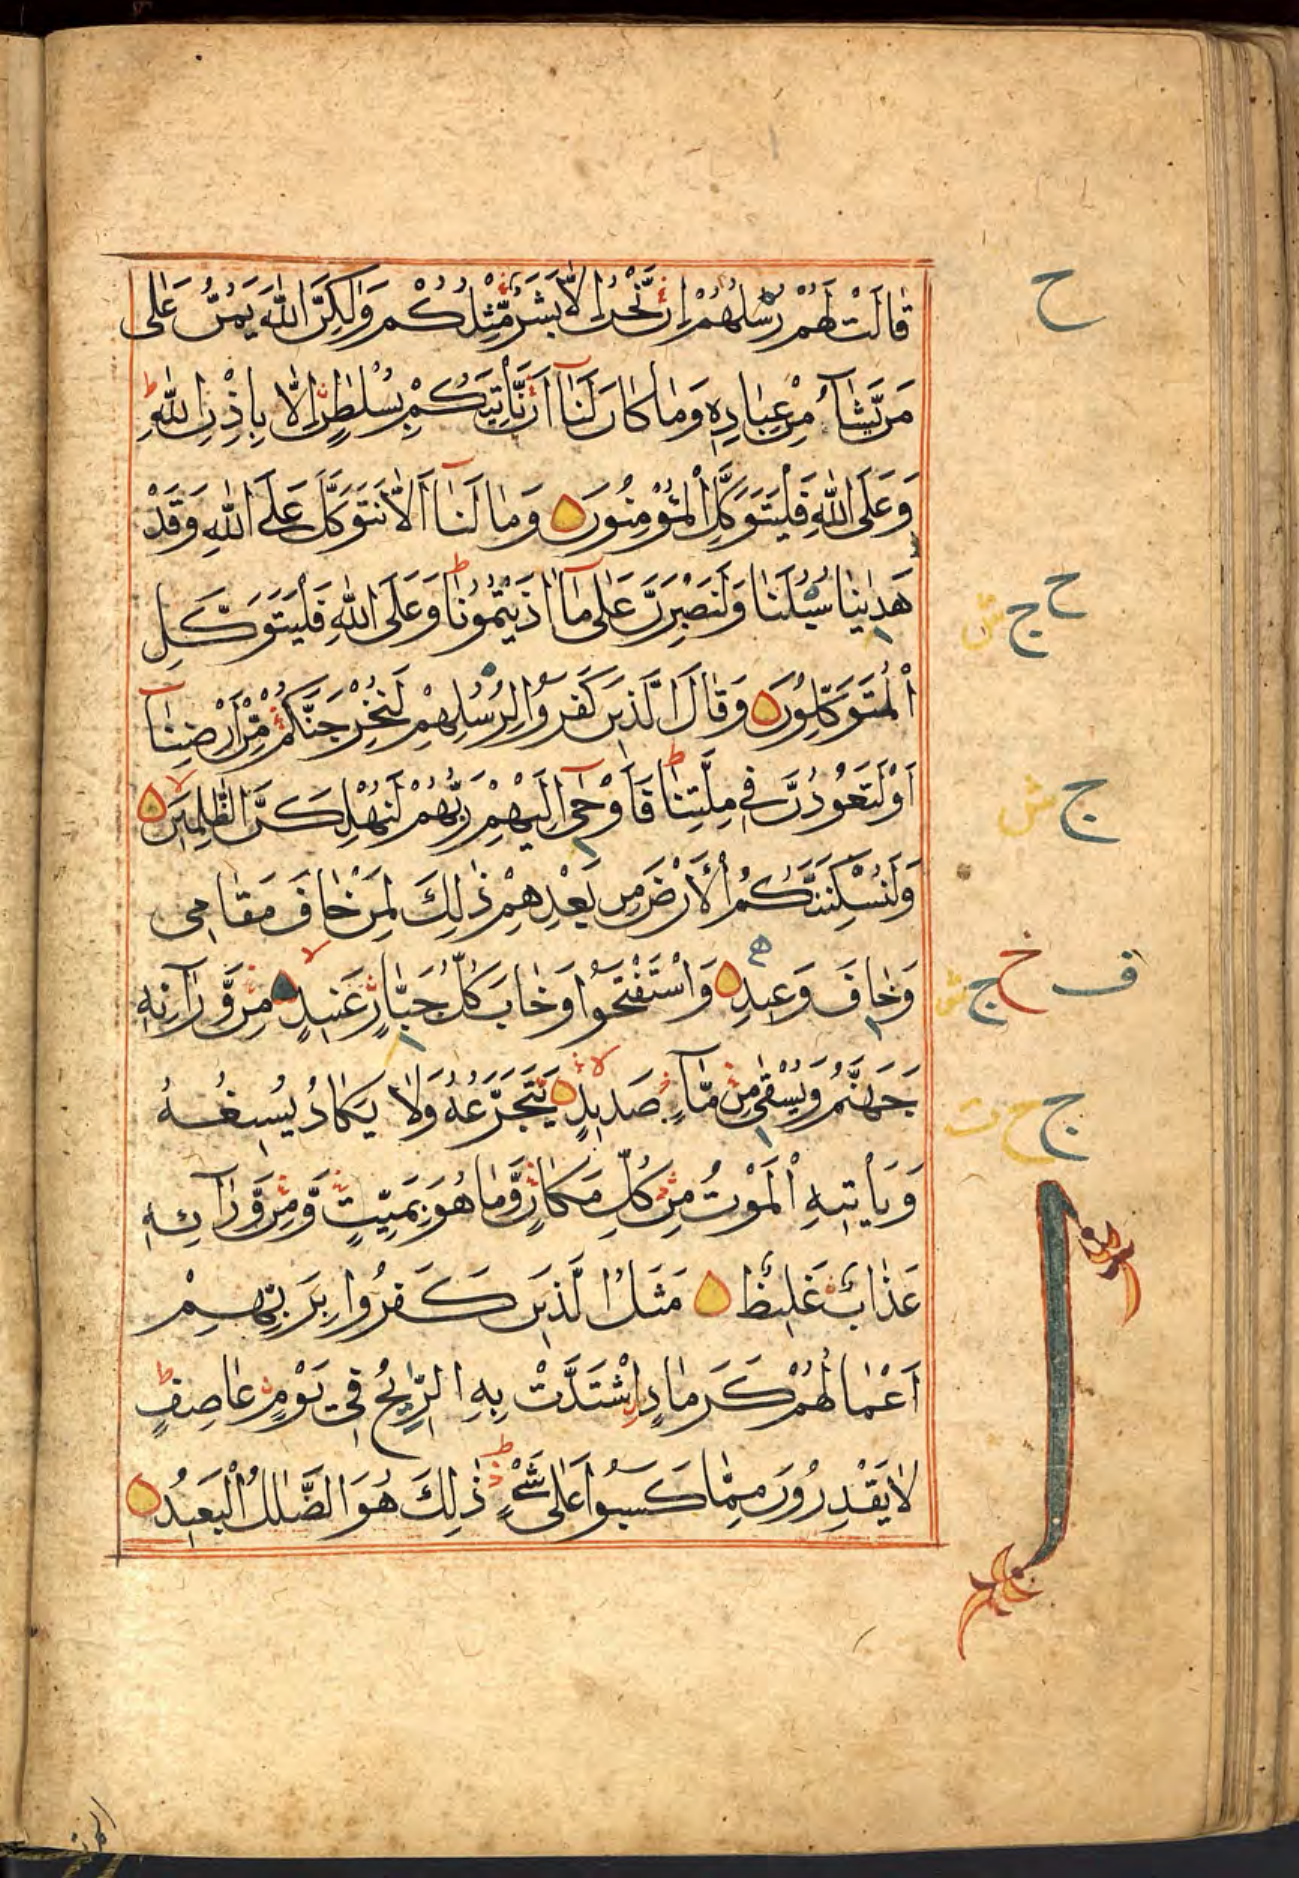 قَالَتْ لَهُمْ رُسُلُهُمْ اِنْ نَّحْنُ اِلَّا بَشَرٌ مِّثْلُكُمْ وَلٰكِنَّ اللّٰهَ يَمُنُّ عَلٰى
مَنْ يَّشَآءُ مِنْ عِبَادِهٖ وَمَا كَانَ لَنَآ اَنْ نَّاْتِيَكُمْ بِسُلْطٰنٍ اِلَّا بِاِذْنِ اللّٰهِ ط
وَعَلَى اللّٰهِ فَلْيَتَوَكَّلِ الْمُؤْمِنُوْنَ وَمَا لَنَآ اَلَّا نَتَوَكَّلَ عَلَى اللّٰهِ وَقَدْ
هَدٰينَا سُبُلَنَا وَلَنَصْبِرَنَّ عَلٰى مَآ اٰذَيْتُمُوْنَا ط وَعَلَى اللّٰهِ فَلْيَتَوَكَّلِ
الْمُتَوَكِّلُوْنَ وَقَالَ الَّذِيْنَ كَفَرُوْا لِرُسُلِهِمْ لَنُخْرِجَنَّكُمْ مِّنْ اَرْضِنَآ
اَوْ لَتَعُوْدُنَّ فِيْ مِلَّتِنَا ط فَاَوْحٰٓى اِلَيْهِمْ رَبُّهُمْ لَنُهْلِكَنَّ الظّٰلِمِيْنَ لا
وَلَنُسْكِنَنَّكُمُ الْاَرْضَ مِنْ بَعْدِهِمْ ذٰلِكَ لِمَنْ خَافَ مَقَامِى
وَخَافَ وَعِيْدِ وَاسْتَفْتَحُوْا وَخَابَ كُلُّ جَبَّارٍ عَنِيْدٍ لا مِنْ وَّرَآئِهٖ
جَهَنَّمُ وَيُسْقٰى مِنْ مَّآءٍ صَدِيْدٍ لا يَتَجَرَّعُهٗ وَلَا يَكَادُ يُسِيْغُهٗ
وَيَاْتِيْهِ الْمَوْتُ مِنْ كُلِّ مَكَانٍ وَّمَا هُوَ بِمَيِّتٍ وَّمِنْ وَّرَآئِهٖ
عَذَابٌ غَلِيْظٌ مَثَلُ الَّذِيْنَ كَفَرُوْا بِرَبِّهِمْ
اَعْمَالُهُمْ كَرَمَادِ اشْتَدَّتْ بِهِ الرِّيْحُ فِيْ يَوْمٍ عَاصِفٍ ط
لَا يَقْدِرُوْنَ مِمَّا كَسَبُوْا عَلٰى شَىْءٍ ط ذٰلِكَ هُوَ الضَّلٰلُ الْبَعِيْدُ
ح
ح ج ش
ج ش
ف خ ج ش
ج ح ت